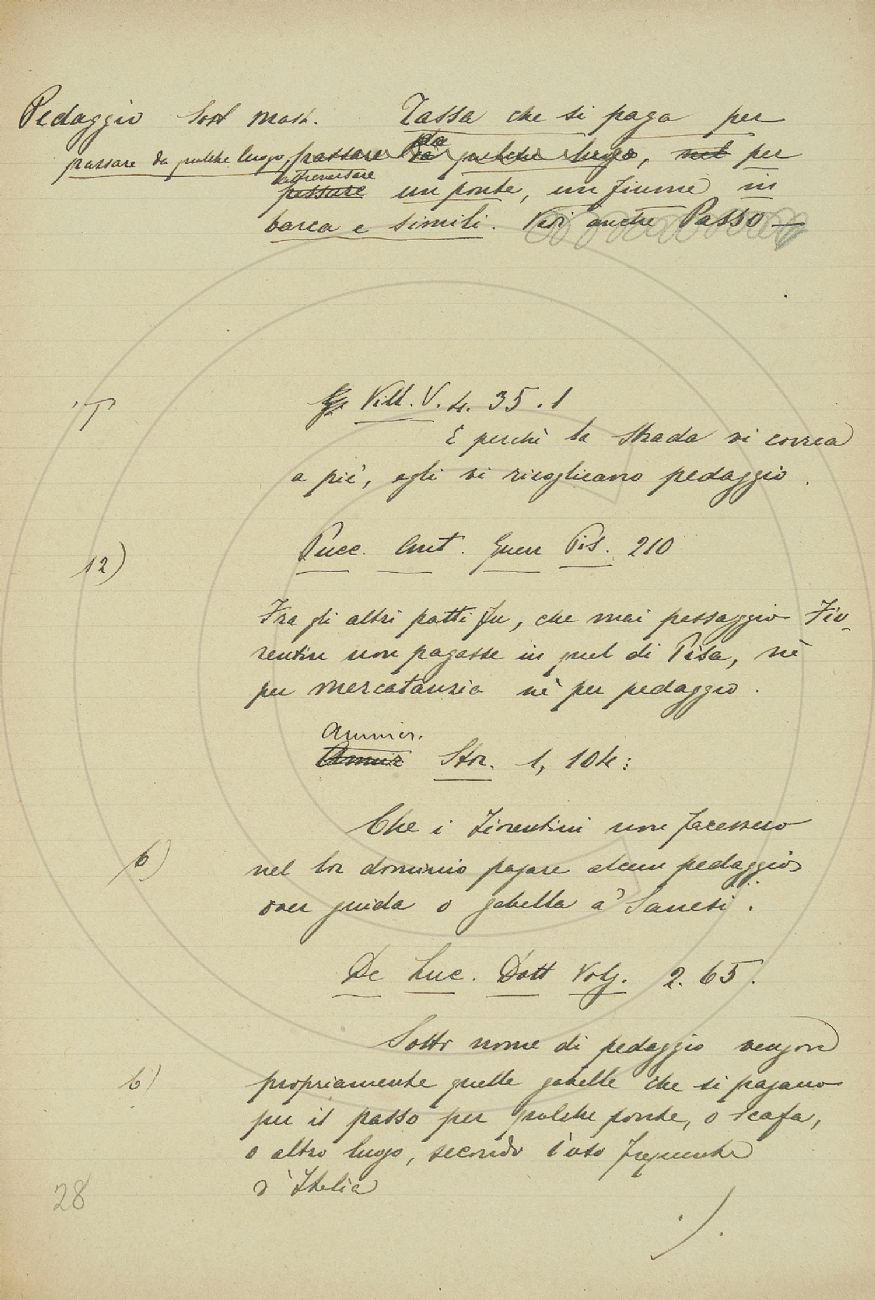 Pedaggio Sost. masch. Tassa che si paga per
passare da qualche luogo, passare da qualche luogo, nel per
attraversare
passare un ponte, un fiume in
barca e simili. Vedi anche Passo —
T
G. Vill. V. 4. 35. 1
E perchè la strada vi correa
a piè, egli vi ricoglieano pedaggio.
12)
Pucc. Cent. Guer Pis. 210
Fra gli altri patti fu, che mai passaggio Fio-
rentin non pagasse in quel di Pisa, nè
per mercatanzia nè per pedaggio.
Ammir.
Ammir Stor. 1, 104:
Che i Fiorentini non facessero
6)
nel lor dominio pagare alcun pedaggio
over guida o gabella a' Sanesi.
De Luc. Dott Volg. 2. 65.
Sotto nome di pedaggio vengon
6)
propriamente quelle gabelle che si pagano
per il passo per qualche ponte, o scafa,
o altro luogo, secondo l'uso frequente
d'Italia
28